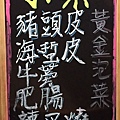 豬頭皮
海蜇皮
牛蒡
肥腸
黃金泡菜